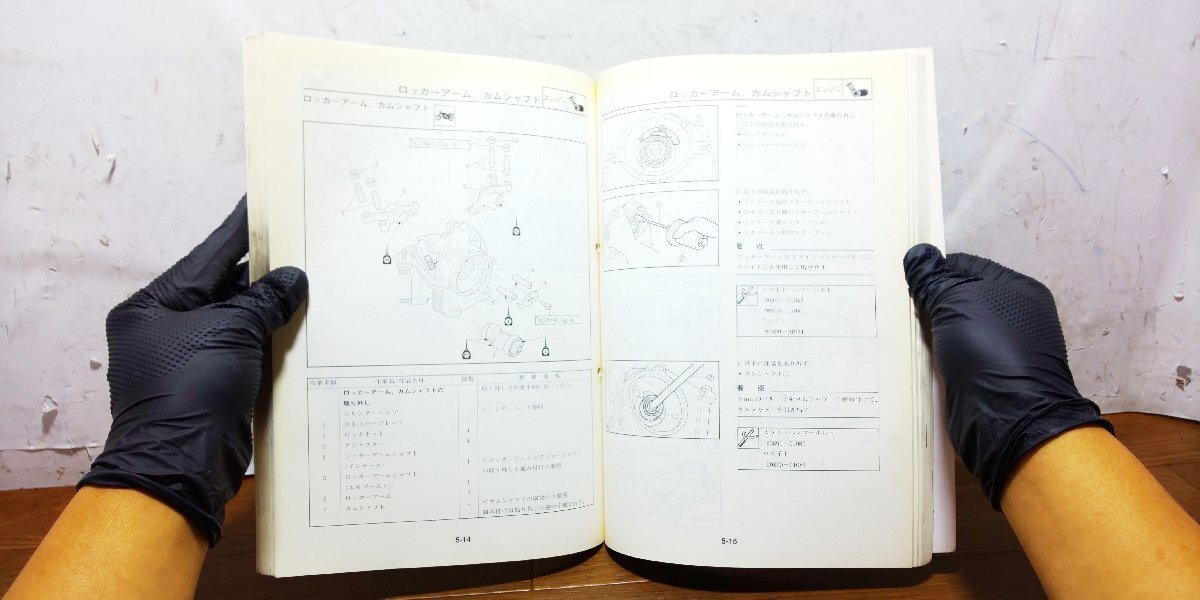 ロッカーアーム、カムシャフト
エンジン
ロッカーアーム、カムシャフト
作業手順 作業名/部品名称 個数 整備情報
ロッカーアーム、カムシャフトの
取り外し
取り外しは作業手順に従って行う。
シリンダーヘッド
シリンダーヘッド参照
1 ストッパープレート
2 ロックナット
3 アジャスター
4 ロッカーアームシャフト
(インテーク)
5 ロッカーアームシャフト
(エキゾースト)
ロッカーアーム
7 カムシャフト
<ロッカーアームとロッカーシャフト
の取り外しと組み付け>参照
<カムシャフトの取付け>参照
組み付けは取り外しの逆の手順で行う。
5-14
ロッカーアーム、カムシャフト
エンジン
ロッカーアーム、カムシャフトの取り外し
1. 以下の部品を取り外す。
• ロックナット①
2. 以下の部品を取り外す。
• インテーク側ロッカーアームシャフト
• エキゾースト側ロッカーアームシャフト
• インテーク側ロッカーアーム
• エキゾースト側ロッカーアーム
要 点
ロッカーアームをスライドハンマーボルト①、
ウエイト②を使用して取り外す。
スライドハンマーボルト
90890-01083
90890-01085
ウエイト
90890-01084
3. 以下の部品を取り外す。
• カムシャフト①
要 点
カムシャフトを引き出す。
スライドハンマーボルト
90890-01085
ウエイト
90890-01084
5-15